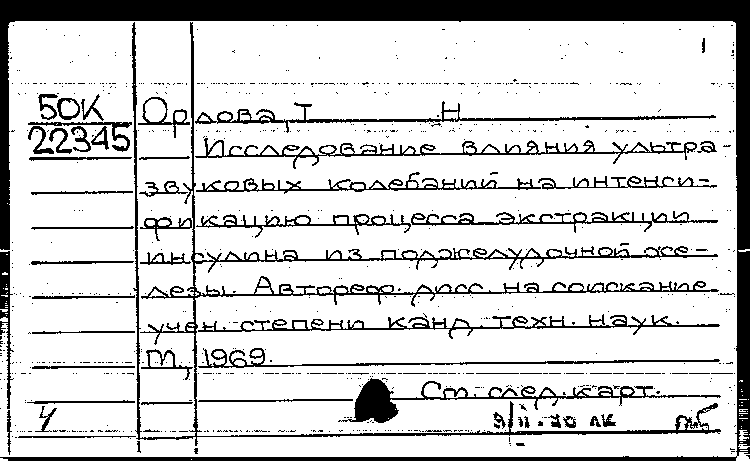 1
50К
22345
Орлова, Т Н
Исследование влияния ультра-
звуковых колебаний на интенси-
фикацию процесса экстракции
инсулина из поджелудочной же-
лезы. Автореф. дисс. на соискание
учен. степени канд. техн. наук.
М., 1969.
См. след. карт.
4